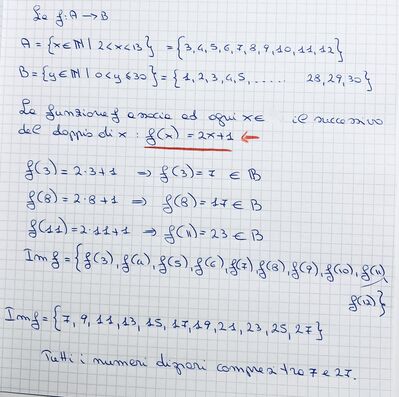 Le f: A → B
A = {x ∈ ℕ | 2 < x < 13} = {3, 4, 5, 6, 7, 8, 9, 10, 11, 12}
B = {y ∈ ℕ | 0 < y ≤ 30} = {1, 2, 3, 4, 5, ..... 28, 29, 30}
La funzione f associa ad ogni x ∈ il successivo
del doppio di x : f(x) = 2x+1 ←
f(3) = 2·3+1 ⇒ f(3) = 7 ∈ B
f(8) = 2·8+1 ⇒ f(8) = 17 ∈ B
f(11) = 2·11+1 ⇒ f(11) = 23 ∈ B
Im f = {f(3), f(4), f(5), f(6), f(7), f(8), f(9), f(10), f(11)
f(12)}
Im f = {7, 9, 11, 13, 15, 17, 19, 21, 23, 25, 27}
Tutti i numeri dispari compresi tra 7 e 27.